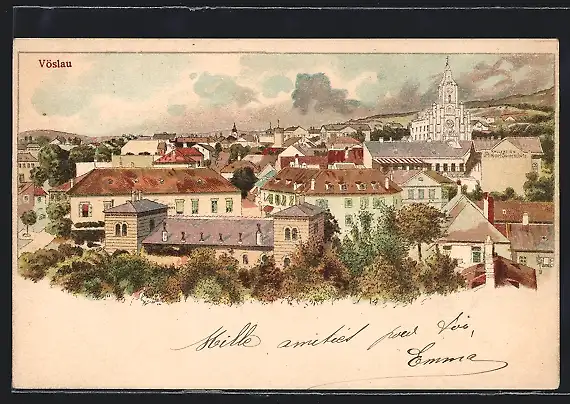 Vöslau
Mille amitiés pour toi,
Emma